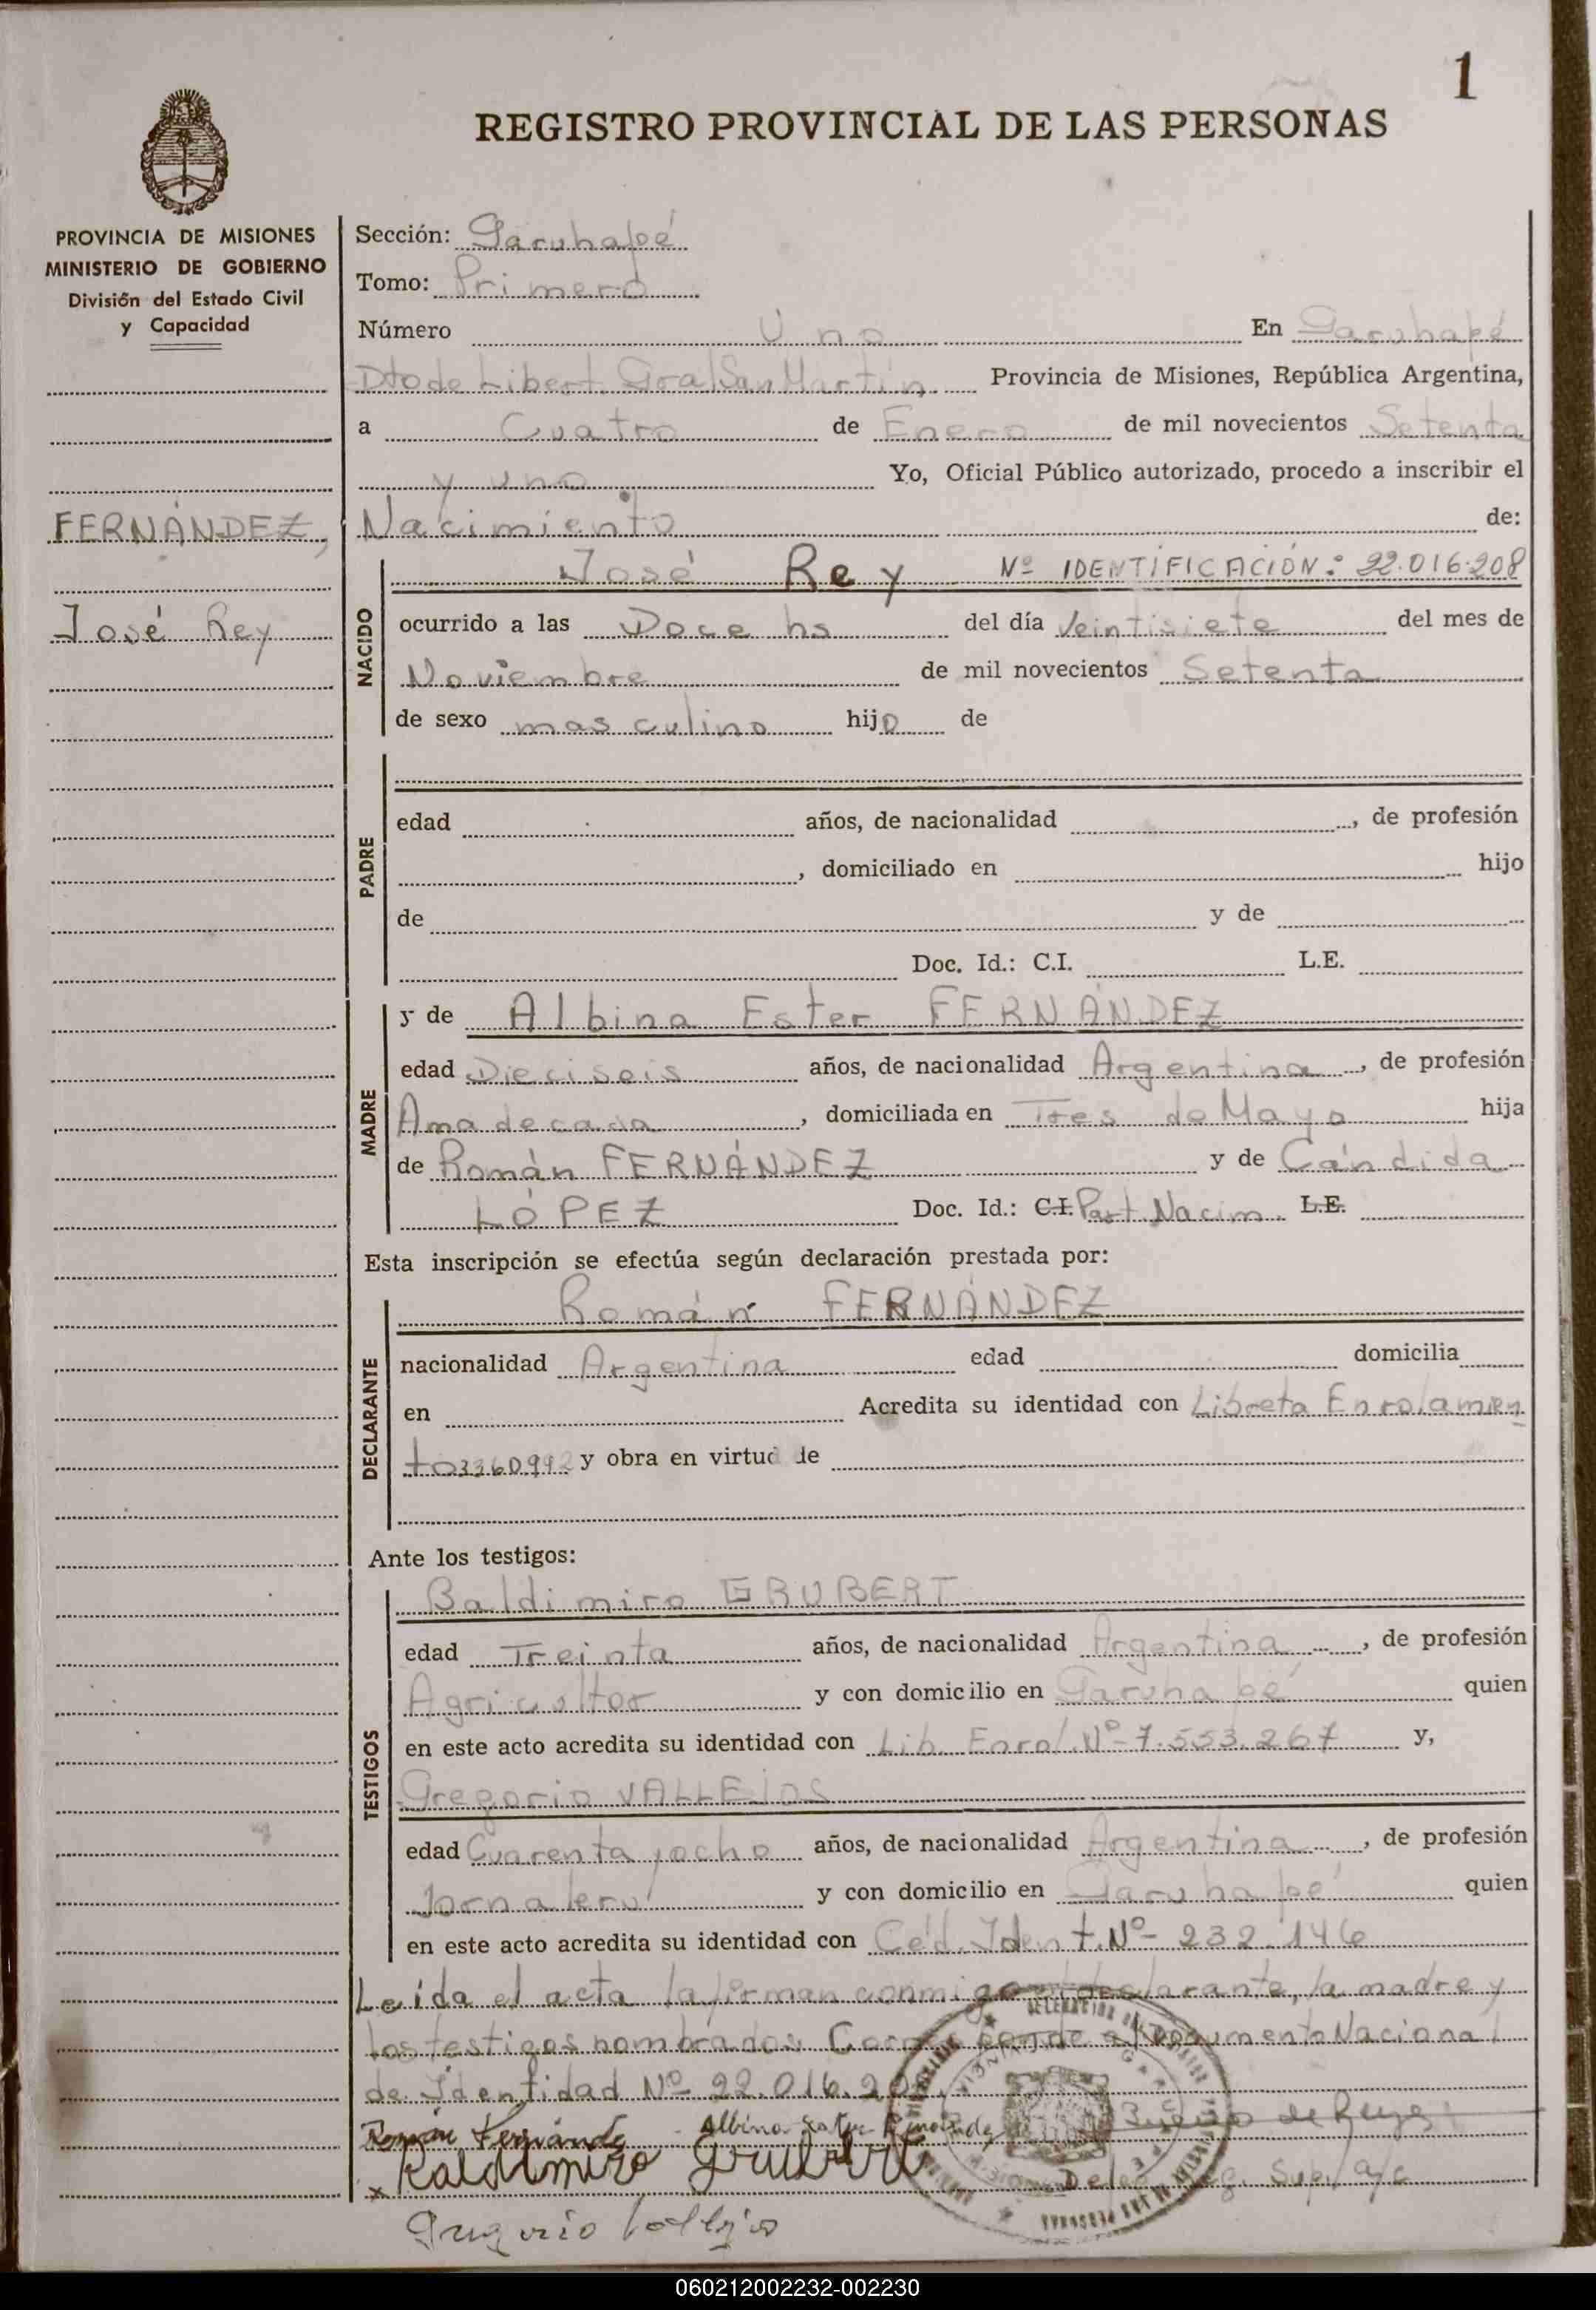 1
REGISTRO PROVINCIAL DE LAS PERSONAS
PROVINCIA DE MISIONES
MINISTERIO DE GOBIERNO
División del Estado Civil
y Capacidad
FERNÁNDEZ,
José Rey
Sección: Garuhapé
Tomo: Primero
Número Uno En Garuhapé
Dto de Libert. Gral San Martín Provincia de Misiones, República Argentina,
a Cuatro de Enero de mil novecientos Setenta
y uno Yo, Oficial Público autorizado, procedo a inscribir el
Nacimiento de:
NACIDO
José Rey Nº IDENTIFICACIÓN: 22.016.208
ocurrido a las Doce hs del día Veintisiete del mes de
Noviembre de mil novecientos Setenta
de sexo masculino hijo de
PADRE
edad años, de nacionalidad , de profesión
, domiciliado en hijo
de y de
Doc. Id.: C.I. L.E.
MADRE
y de Albina Ester FERNÁNDEZ
edad Dieciseis años, de nacionalidad Argentina, de profesión
Ama de casa, domiciliada en Tres de Mayo hija
de Román FERNÁNDEZ y de Cándida
LÓPEZ Doc. Id.: C.I. Part. Nacim. L.E.
Esta inscripción se efectúa según declaración prestada por:
DECLARANTE
Román FERNÁNDEZ
nacionalidad Argentina edad domicilia
en Acredita su identidad con Libreta Enrolamen
to 3360992 y obra en virtud de
Ante los testigos:
TESTIGOS
Baldimiro GRUBERT
edad Treinta años, de nacionalidad Argentina, de profesión
Agricultor y con domicilio en Garuhapé quien
en este acto acredita su identidad con Lib. Enrol. Nº 7.553.267 y,
Gregorio VALLEJOS
edad Cuarenta y ocho años, de nacionalidad Argentina, de profesión
Jornalero y con domicilio en Garuhapé quien
en este acto acredita su identidad con Céd. Ident. Nº 232.146
Leída el acta la firman conmigo el declarante, la madre y
los testigos nombrados. Corresponde a Documento Nacional
de Identidad Nº 22.016.20
Román Fernánde Albina Ester
Baldimiro Grubert
Deleg. Reg. Sup. a/c
Gregorio Vallejos
060212002232-002230